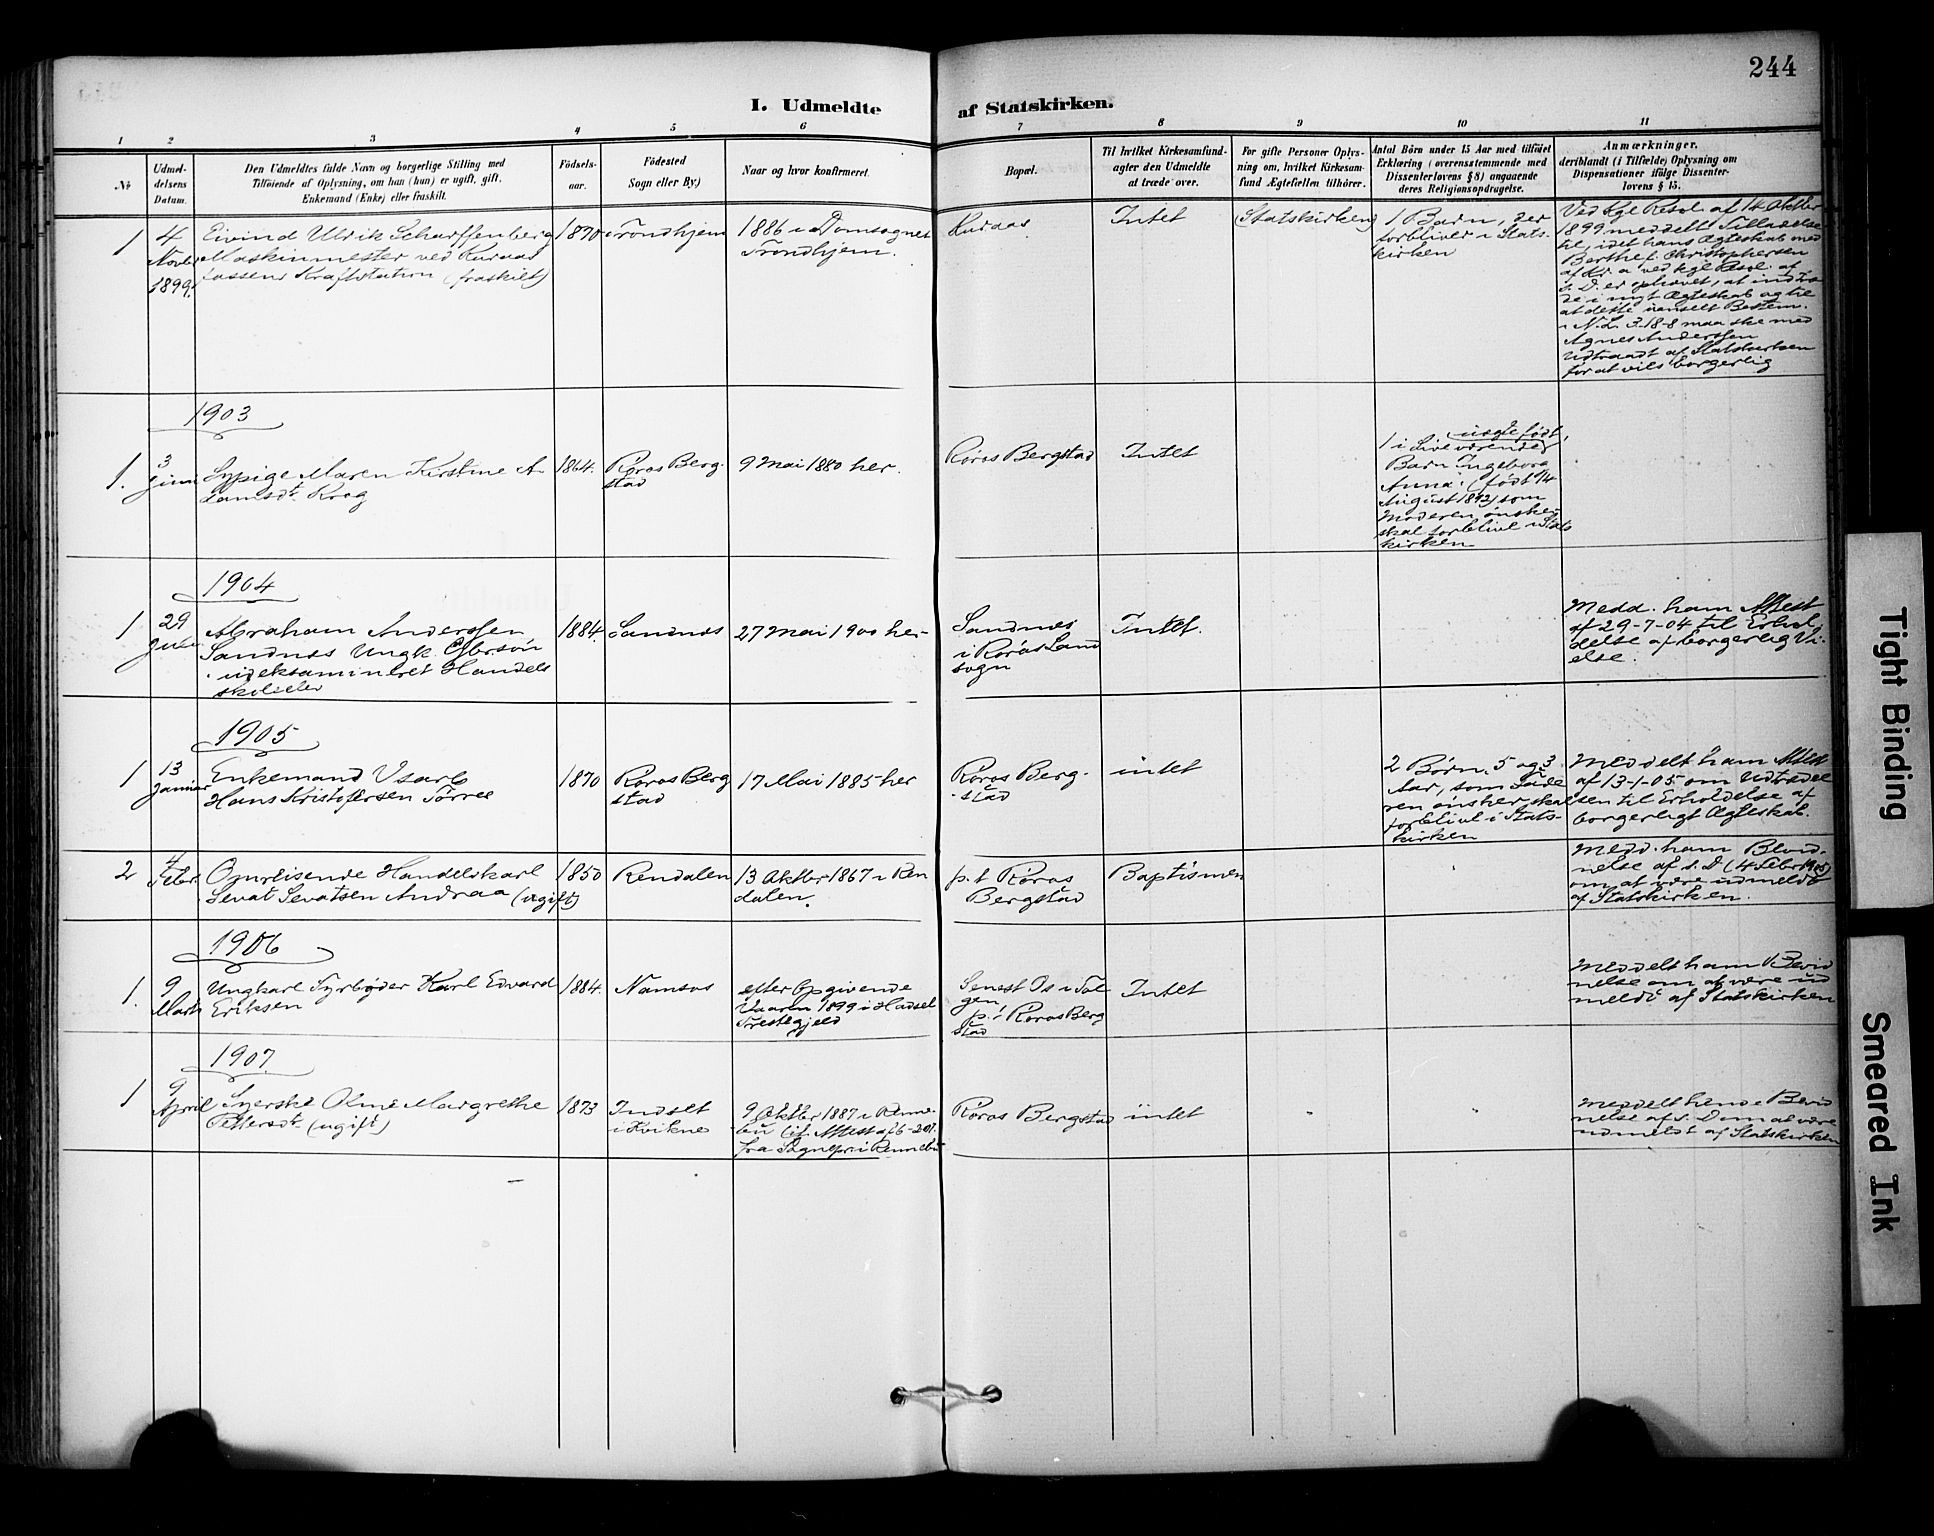 244
I. Udmeldte af Statskirken.
1 2 3 4 5 6 7 8 9 10 11
№
Udmel-
delsens
Datum.
Den Udmeldtes fulde Navn og borgerlige Stilling med
Tilföiende af Oplysning, om han (hun) er ugift, gift,
Enkemand (Enke) eller fraskilt.
Födsels-
aar.
Födested
Sogn eller By.)
Naar og hvor konfirmeret.
Bopæl.
Til hvilket Kirkesamfund
agter den Udmeldte
at træde over.
For gifte Personer Oplys-
ning om, hvilket Kirkesam-
fund Ægtefællen tilhörer.
Antal Börn under 15 Aar med tilföiet
Erklæring (overensstemmende med
Dissenterlovens § 8) angaaende
deres Religionsopdragelse.
Anmærkninger,
deriblandt (i Tilfælde) Oplysning om
Dispensationer ifölge Dissenter-
lovens § 15.
1
4
Novbr
1899.
Eivind Ulrik Scharffenberg
Maskinmester ved Kuraas
fossens Kraftstation (fraskilt)
1870
Trondhjem
1886 i Domsognet
Trondhjem.
Kuraas
Intet
(Statskirken)
1 Barn, der
forbliver i Stats-
kirken
Ved kgl Resol. af 14 Oktber
1899 meddelt Tilladelse
til, idet hans Ægteskab med
Berthe f. Christophersen
af Kr.a ved kgl Resol. af
s. D. er ophævet, at indtræ
de i nyt Ægteskab og til
at dette uanseet Bestem.
i N.L. 3-18-8 maa ske med
Agnes Anderssen
Udtraadt af Statskirken
for at vies borgerlig
1903
1.
3
Juni
Sypige Maren Kirstine A-
Lamsdt. Krog
1864.
Røros Berg-
stad
9 Mai 1880 her.
Røros Bergstad
Intet
uægtefødt,
1 i Live værende
Barn Ingeborg
Anna (født 14
August 1892) som
Moderen ønsker
skal forblive i Stats
kirken
1904
1
29
Juli
Abraham Anderssen
Sandnes Ungk. Gbr.søn
udeksamineret Handels
skoleelev
1884.
Sandnes
27 Mai 1900 her-
Sandnes
i Røros Land
sogn
Intet.
Medd. ham Attest
af 29-7-04 til Erhol-
delse af borgerlig Vi-
else.
1905
1
13
Januar
Enkemand Vsarb
Hans Kristofersen Tørres
1870
Røros Berg
stad
17 Mai 1885 her
Røros Berg-
stad
intet
2 Børn, 5 og 3
Aar, som Fade
ren ønsker skal
forblive i Stats-
kirken
Meddelt ham Attest
af 13-1-05 om Udtrædel
sen til Erholdelse af
borgerligt Ægteskab.
2
4
Febr
Omreisende Handelskarl
Sevat Sevatsen Andraa (ugift)
1850
Rendalen
13 Oktber 1867 i Ren
dalen.
p. t Røros
Bergstad
Baptismen
Medd. ham Bevid-
nelse af s. D (4 Febr 1905)
om at være udmeldt
af Statskirken.
1906
1.
9
Marts
Ungkarl Fyrbøder Karl Edvard
Eriksen
1884.
Namsos
efter Opgivende
Vaaren 1899 i Hadsel
Prestegjeld
Senest Os i Tol
gen
p. t Røros Berg
stad
Intet
Meddelt ham Bevid
nelse om at være ud
meldt af Statskirken
1907.
1
9
April
Syerske Oline Margrethe
Pettersdt. (ugift)
1873
Indset
i Kvikne
9 Oktber 1887 i Renne-
bu (if. Attest af 6-2-07.
fra Sognepr. i Rennebu
Røros Bergstad
intet
Meddelt hende Bevid
nelse af s. D om at være
udmeldt af Statskirken
Tight Binding
Smeared Ink